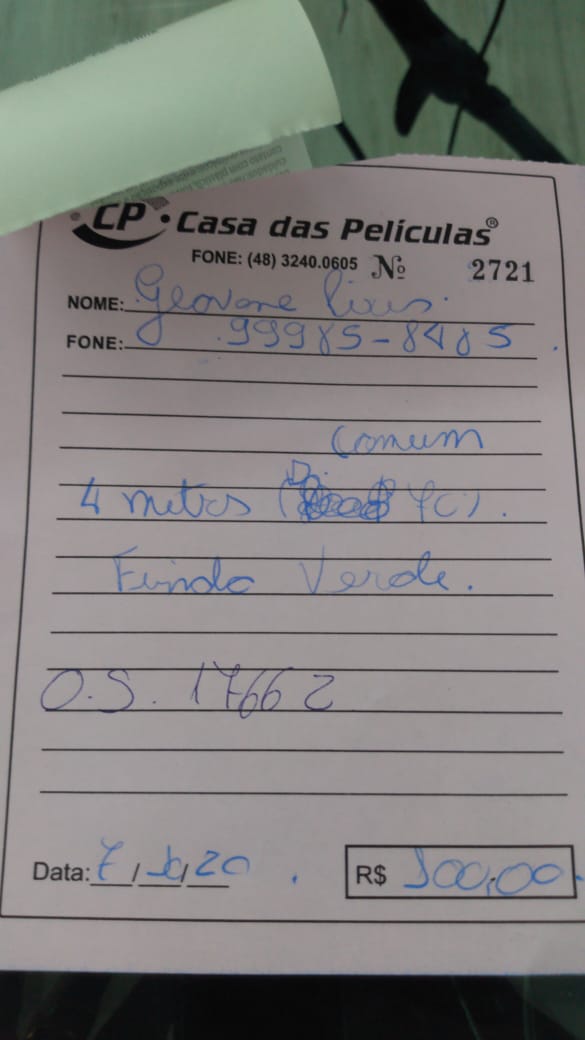 CP • Casa das Películas®
FONE: (48) 3240.0605 Nº 2721
NOME: Geovane
FONE: 99985-8485
Comum
4 metros
Fundo Verde.
O.S. 17662
Data: 7/10/20
R$ 300,00